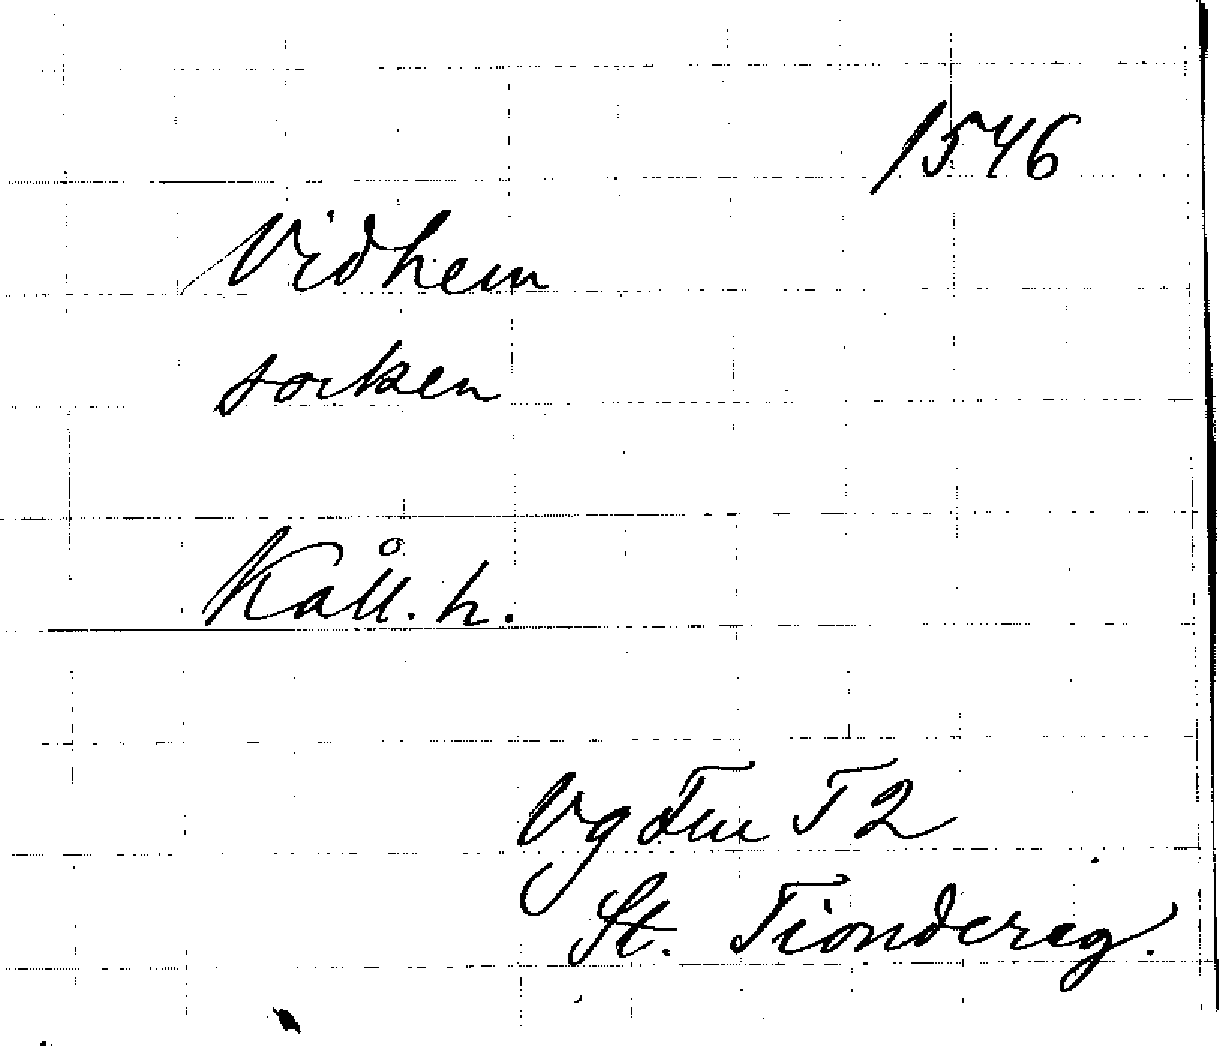 1546
Vidhem
socken
Kåll. h.
Vg Fm T 2
St. Tiondereg.